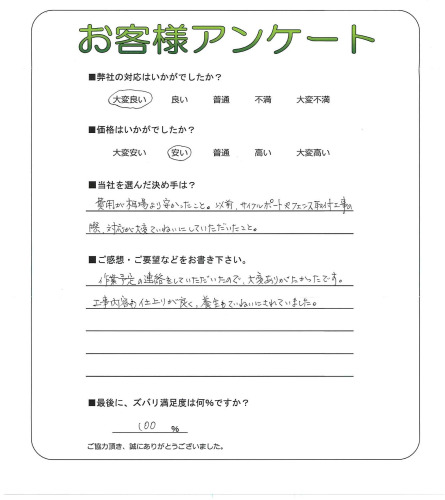 お客様アンケート
■弊社の対応はいかがでしたか？
大変良い 良い 普通 不満 大変不満
■価格はいかがでしたか？
大変安い 安い 普通 高い 大変高い
■当社を選んだ決め手は？
費用が相場より安かったこと。以前、サイクルポートやフェンス取付工事の
際、対応が大変ていねいにしていただいたこと。
■ご感想・ご要望などをお書き下さい。
作業予定の連絡をしていただいたので、大変ありがたかったです。
工事内容も仕上りが良く、養生もていねいにされていました。
■最後に、ズバリ満足度は何％ですか？
100 %
ご協力頂き、誠にありがとうございました。